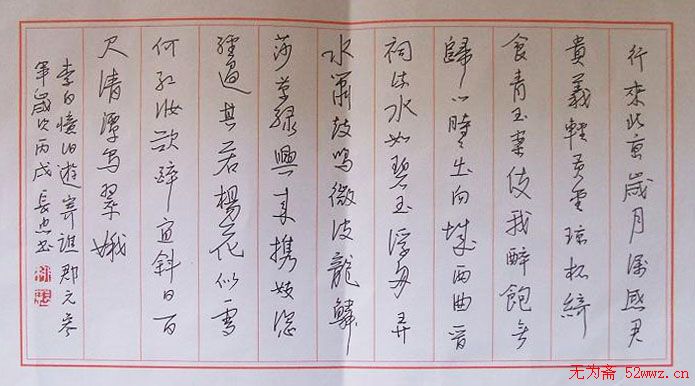 行來北京歲月深感君
貴義輕黃金瓊杯綺
食青玉案使我醉飽無
歸心時出向城西曲晉
祠流水如碧玉浮舟弄
水簫鼓鳴微波龍鱗
莎草綠興來攜妓恣
經過其若楊花似雪
何紅妝欲醉宜斜日百
尺清潭寫翠娥
李白憶旧遊寄譙郡元參
軍歲次丙戌長忠書
无为斋 52wwz.cn